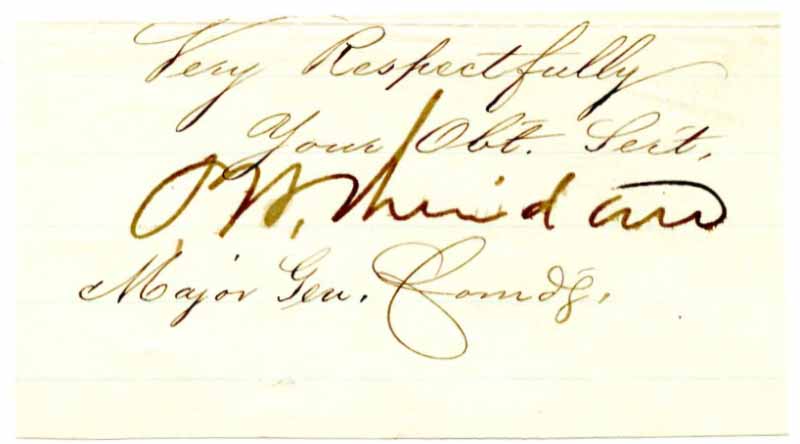 Very Respectfully
Your Obt. Sert,
P. H. Sheridan
Major Gen. Comdg.